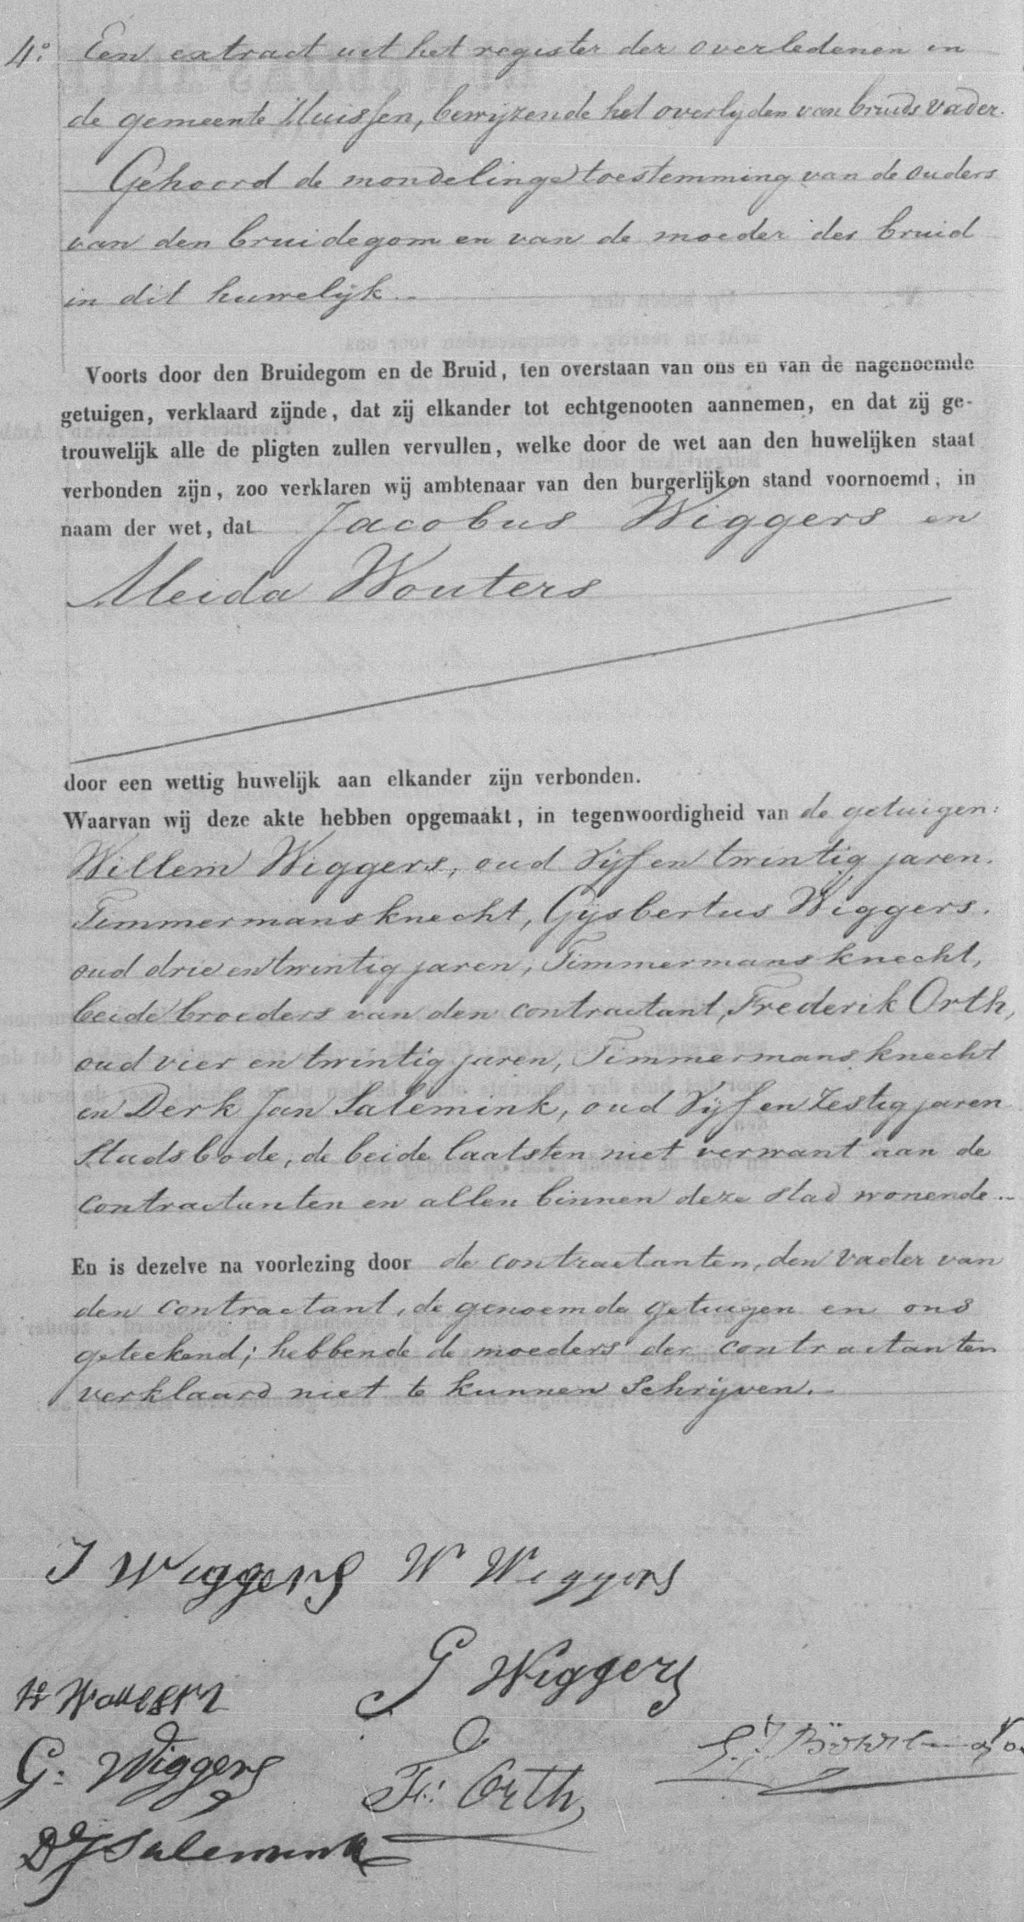 4.° Een extract uit het register der overledenen in
de gemeente Huissen, bewijzende het overlyden van bruids vader.
Gehoord de mondelinge toestemming van de ouders
van den bruidegom en van de moeder der bruid
in dit huwelijk.
Voorts door den Bruidegom en de Bruid, ten overstaan van ons en van de nagenoemde
getuigen, verklaard zijnde, dat zij elkander tot echtgenooten aannemen, en dat zij ge-
trouwelijk alle de pligten zullen vervullen, welke door de wet aan den huwelijken staat
verbonden zijn, zoo verklaren wij ambtenaar van den burgerlijken stand voornoemd, in
naam der wet, dat Jacobus Wiggers en
Aleida Wouters
door een wettig huwelijk aan elkander zijn verbonden.
Waarvan wij deze akte hebben opgemaakt, in tegenwoordigheid van de getuigen:
Willem Wiggers, oud Vijf en twintig jaren.
Timmermansknecht, Gijsbertus Wiggers.
oud drie en twintig jaren, Timmermansknecht,
beide broeders van den contractant, Frederik Orth,
oud vier en twintig jaren, Timmermansknecht
en Derk Jan Salemink, oud Vijf en Zestig jaren
Stadsbode, de beide laatsten niet verwant aan de
contractanten en allen binnen deze stad wonende
En is dezelve na voorlezing door de contractanten, den Vader van
den contractant, de genoemde getuigen en ons
geteekend; hebbende de moeders der contractanten
verklaard niet te kunnen Schrijven.
J Wiggers W Wiggers
G Wiggers
G: Wiggers
Fr: Orth
DJ Salemink